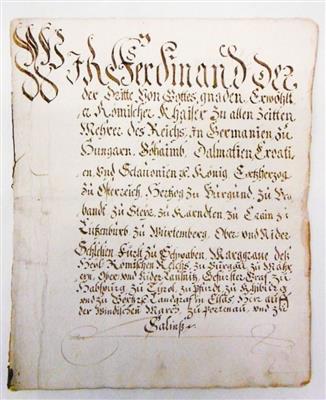 Wir Ferdinand der
der Dritte Von Gottes gnaden Erwöhlt
er Römischer Khaiser Zu allen Zeitten
Mehrer des Reichs, in Germanien zu
Hungarn, Böhaimb, Dalmatien Croati
en Und Sclauonien &c. König, Ertzherzog
zu Österreich, Hertzog zu Burgund, zu Bra
bandt, zu Steir, zu Karndten, zu Crain, zu
Lützenburg, zu Würtemberg, Ober und Nider
Schlesien, Fürst zu Schwaben, Marggraue deß
Heyl: Römischen Reichs, zu Burgau, zu Mahr
ern, Ober und Nider Laußnitz, Gefürster Graf zu
Habspurg, zu Tirol, zu Pfürdt, zu Khiburg
und zu Görtz &c. Landgraf in Elsäs, Herr auf
der Windischen March, zu Portenau, und zu
Salinß &c.